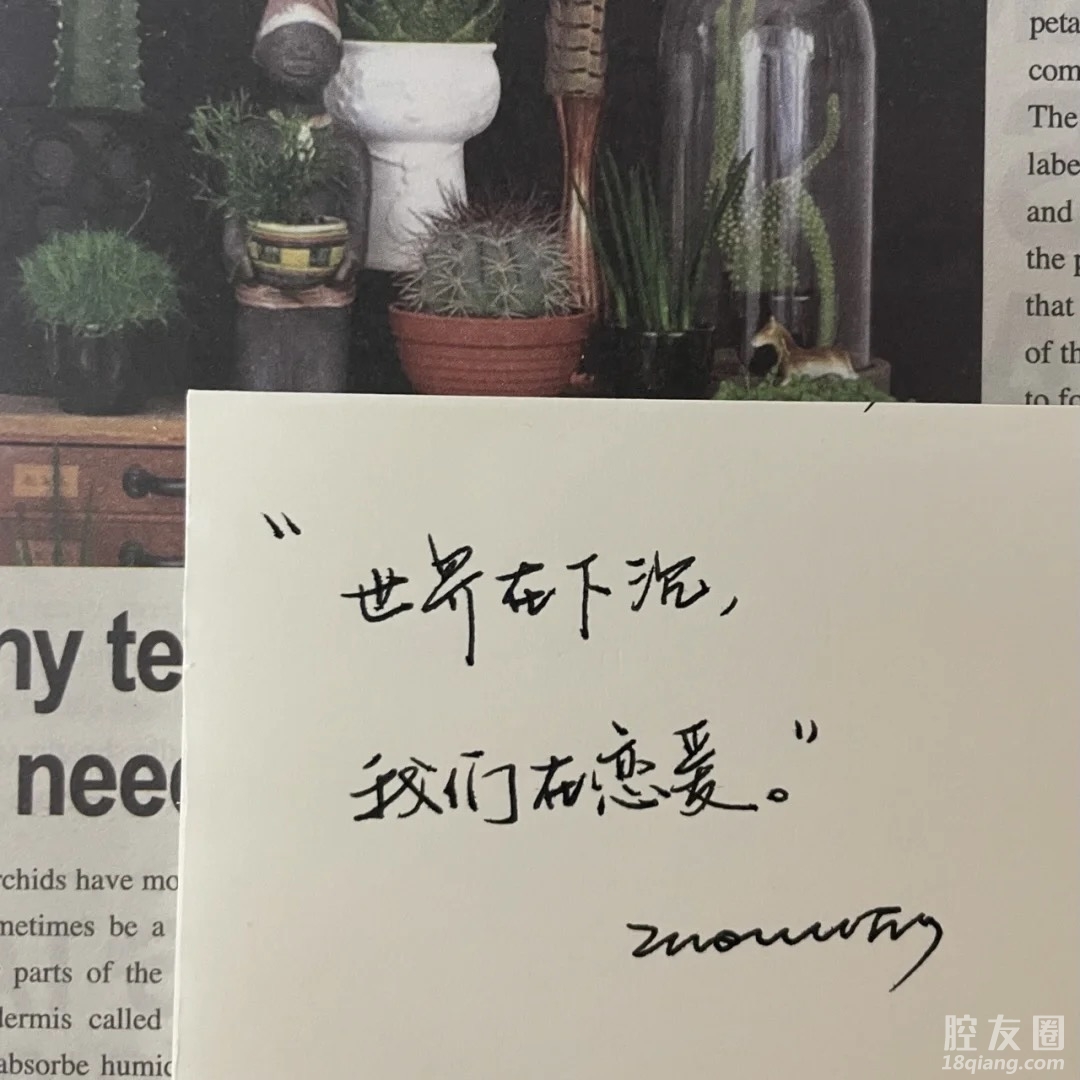 peta
com
The
labe
and
the p
that
of th
to fo
"世界在下沉，
我们在恋爱。"
ny te
need
rchids have mo
metimes be a
parts of the
dermis called
absorbe humid
腔友圈
18qiang.com